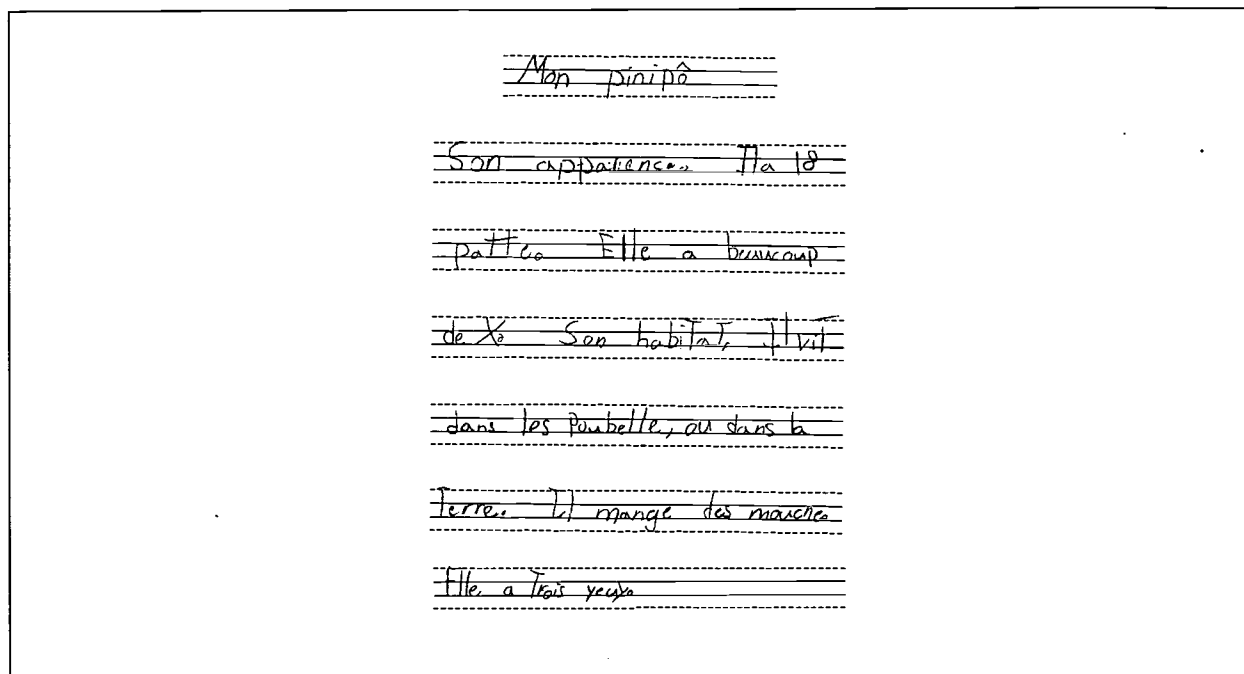 Mon pinipô
Son apparience. Il a 18
patte. Elle a beaucoup
de X. Son habitat, Il vit
dans les Poubelle, ou dans la
Terre. Il mange des mouche.
Elle a Trois yeux.